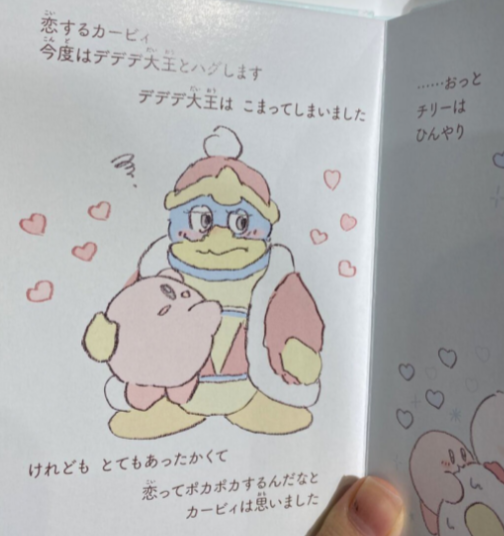 恋するカービィ
今度はデデデ大王とハグします
デデデ大王は こまってしまいました
けれども とてもあったかくて
恋ってポカポカするんだなと
カービィは思いました
……おっと
チリーは
ひんやり